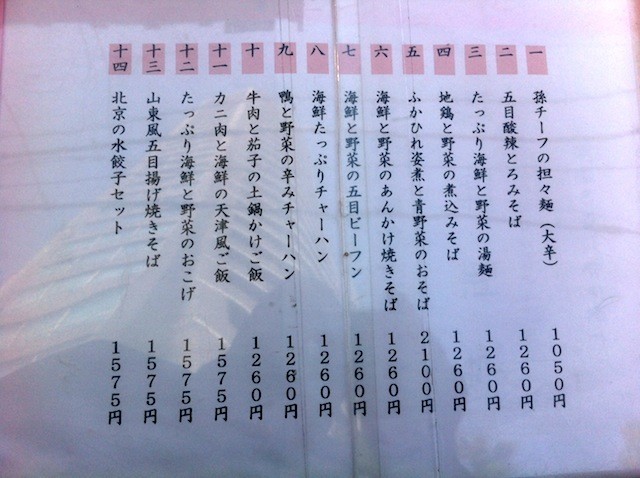 一 孫チーフの担々麺（大辛） １０５０円
二 五目酸辣とろみそば １２６０円
三 たっぷり海鮮と野菜の湯麺 １２６０円
四 地鶏と野菜の煮込みそば １２６０円
五 ふかひれ姿煮と青野菜のおそば ２１００円
六 海鮮と野菜のあんかけ焼きそば １２６０円
七 海鮮と野菜の五目ビーフン １２６０円
八 海鮮たっぷりチャーハン １２６０円
九 鴨と野菜の辛みチャーハン １２６０円
十 牛肉と茄子の土鍋かけご飯 １２６０円
十一 カニ肉と海鮮の天津風ご飯 １５７５円
十二 たっぷり海鮮と野菜のおこげ １５７５円
十三 山東風五目揚げ焼きそば １５７５円
十四 北京の水餃子セット １５７５円